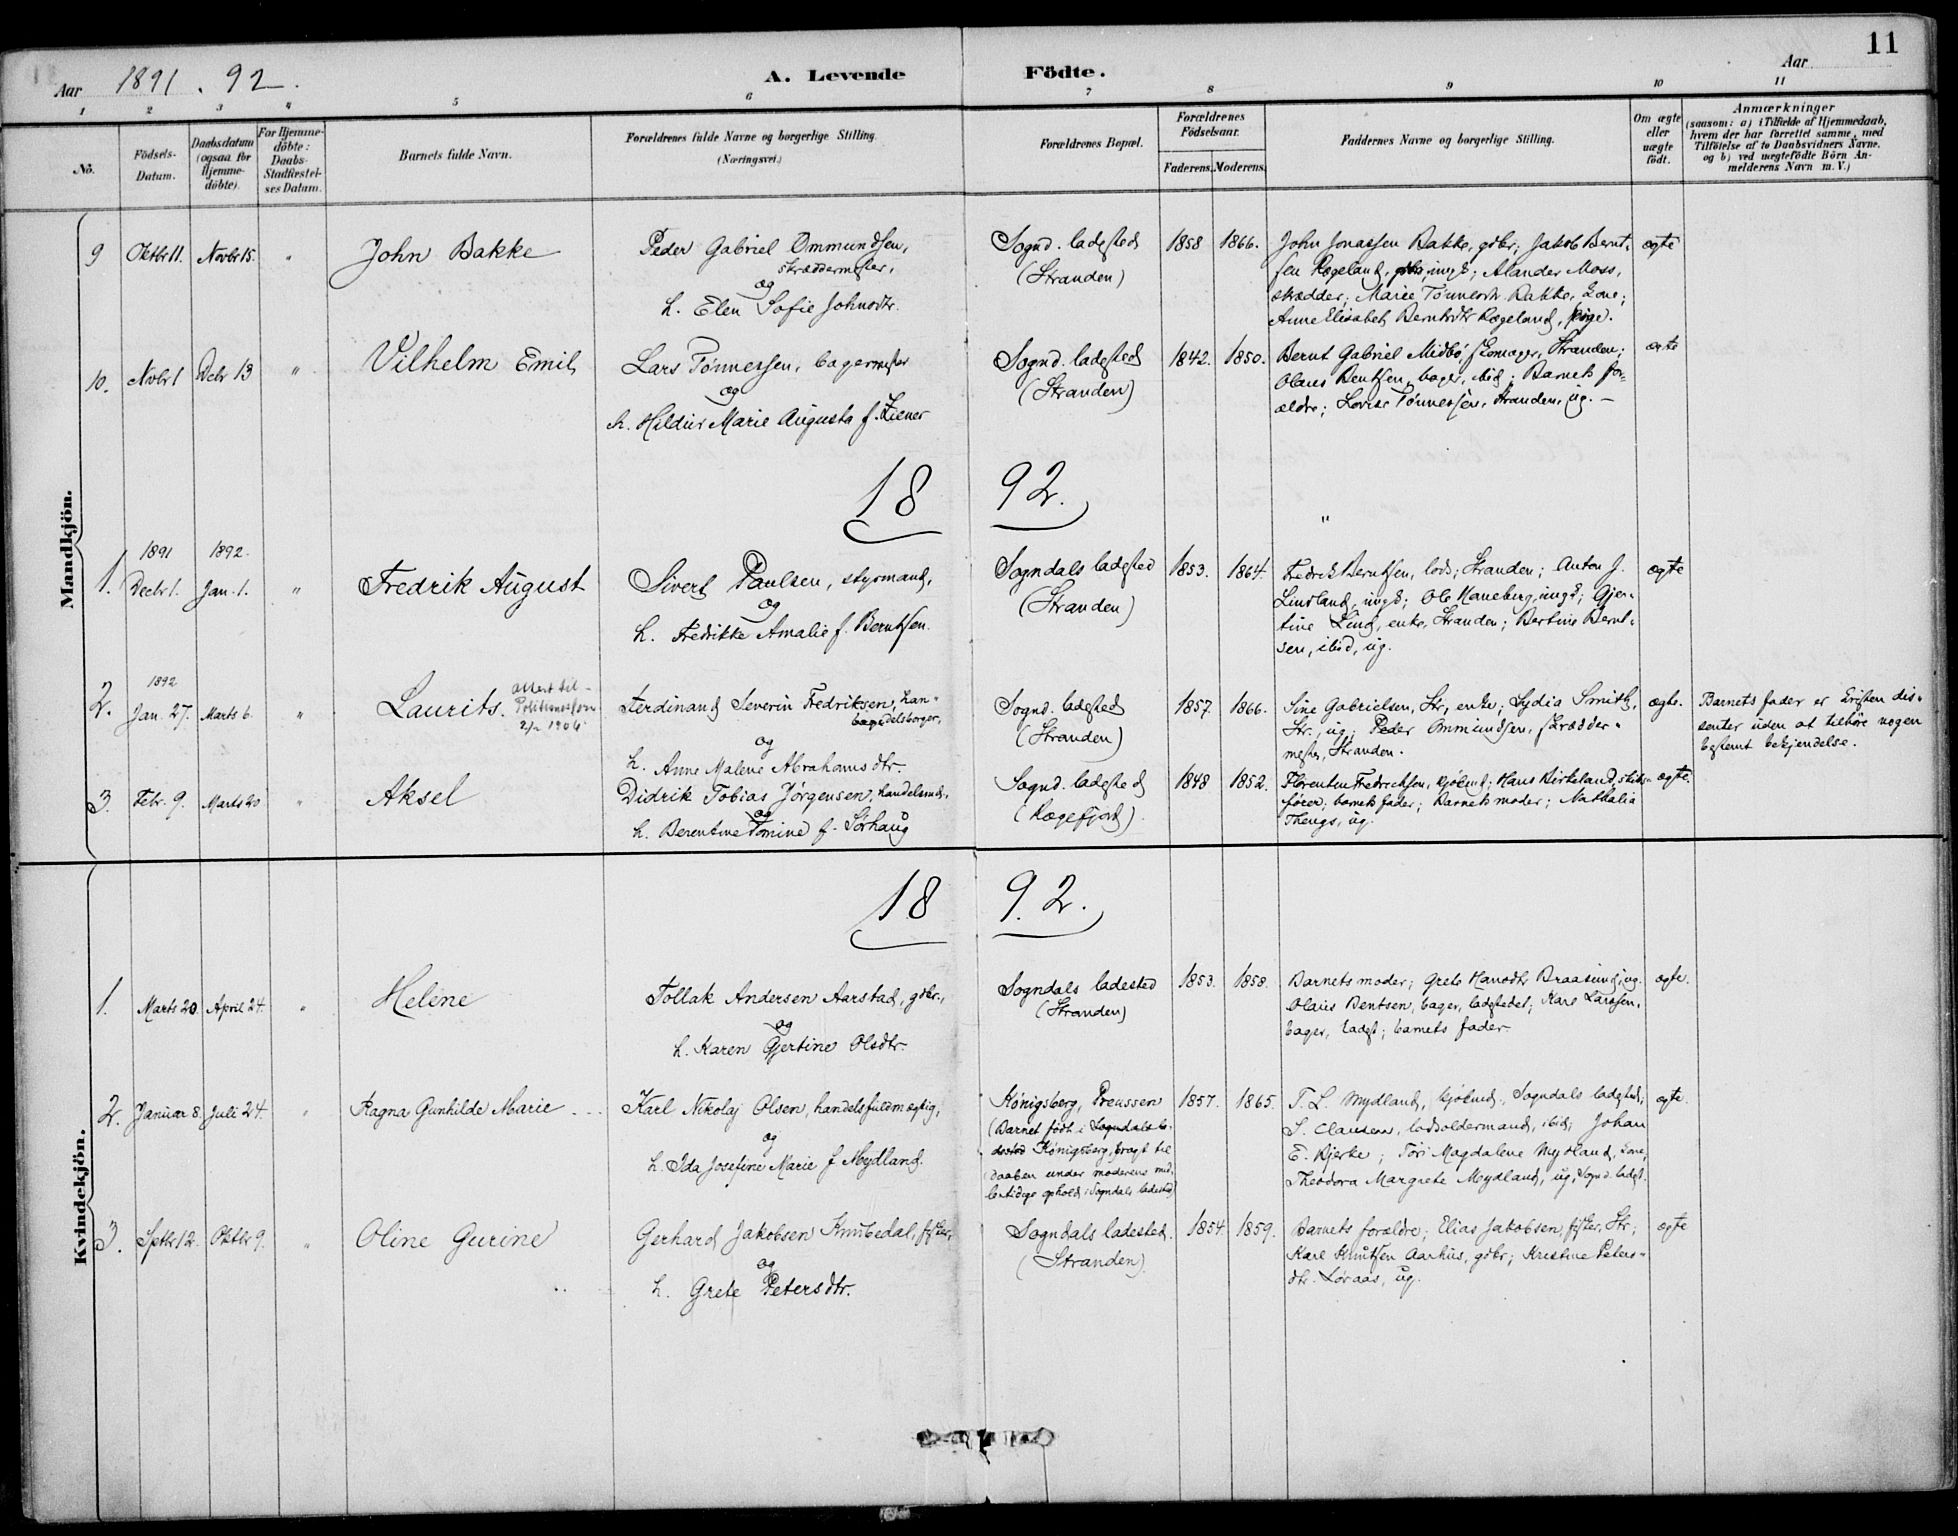 11
Aar 1891. 92.
A. Levende Födte.
Aar
1 2 3 4 5 6 7 8 9 10 11
No.
Födsels-
Datum.
Daabsdatum
(ogsaa for
Hjemme-
döbte).
For Hjemme-
döbte:
Daabs-
Stadfæstel-
ses Datum.
Barnets fulde Navn.
Forældrenes fulde Navne og borgerlige Stilling.
(Næringsvei.)
Forældrenes Bopæl.
Forældrenes
Födselsaar.
Faderens. Moderens.
Faddernes Navne og borgerlige Stilling.
Om ægte
eller
uægte
födt.
Anmærkninger
(saasom: a) i Tilfælde af Hjemmedaab,
hvem der har forrettet samme, med
Tilföielse af to Daabsvidners Navne.
og b) ved uægtefödte Börn An-
melderens Navn m. V.)
Mandkjön.
9
Oktbr 11.
Novbr 15.
"
John Bakke
Peder Gabriel Ommundsen,
skræddermester,
og
h. Elen Sofie Johnsdtr.
Sognd. ladested
(Stranden)
1858
1866.
John Jonassen Bakke, gdbr; Jakob Bernt-
sen Rægeland, ungk; Alander Moss,
skrædder; Marie Tønnesdtr. Bakke, kone;
Anne Elisabet Berntsdtr Rægeland, pige.
ægte
10.
Novbr 1
Debr 13
"
Vilhelm Emil
Lars Tønnessen, bagermester
og
h. Hildur Marie Augusta f. Ziener
Sognd. ladested
(Stranden)
1842.
1850.
Bernt Gabriel Midbö, skomager, Stranden;
Olaus Bentsen, bager, ibid; Barnets for-
ældre; Lovise Tønnessen, Stranden, ug. -
ægte
18 92.
"
1.
1891
Decbr 1.
1892.
Jan. 1.
"
Fredrik August
Sivert Paulsen, styrmand,
og
h. Fredrikke Amalie f. Berntsen.
Sogndals ladested
(Stranden)
1853.
1864.
Fredrik Berntsen, lods, Stranden; Anton J.
Lindland, ungk; Ole Haneberg, ungk; Gjer-
tine Lind, enke, Stranden; Bertine Bernt-
sen, ibid, ug.
ægte
2.
1892
Jan. 27.
Marts 6.
"
Laurits.
Attest til
2/2 1906
Ferdinand Severin Fredriksen, han-
delsborger,
og
h. Anne Malene Abrahamsdtr.
Sognd. ladested
(Stranden)
1857.
1866.
Sine Gabrielsen, Str, enke; Lydia Smith,
Str., ug; Peder Ommundsen, skrædder-
mester, Stranden.
ægte.
Barnets fader er kristen dis-
senter uden at tilhöre nogen
bestemt bekjendelse.
3.
Febr. 9.
Marts 20
"
Aksel
Didrik Tobias Jørgensen, handelsmd,
og
h. Berentine Tomine f. Sörhaug
Sognd. ladested
(Rægefjord).
1848
1852.
Florentin Fredrichsen, kjøbmd; Hans Birkeland, skibs-
fører; barnets fader; Barnets moder; Nathalia
Thengs, ug.
ægte.
18 92.
Kvindekjön.
1.
Marts 20.
April 24.
"
Helene
Tollak Andersen Aarstad, gdbr.,
og
h. Karen Gjertine Olsdtr.
Sogndals ladested
(Stranden)
1853.
1858.
Barnets moder; Grete Hansdtr Braasund, ug.
Olaus Bentsen, bager, ladestedet; Karl Larssen,
bager, ladst; barnets fader.
ægte.
2.
Januar 8.
Juli 24.
"
Ragna Gunhilde Marie
Karl Nikolaj Olsen, handelsfuldmægtig,
og
h. Ida Josefine Marie f. Mydland.
Königsberg, Preussen
(Barnet födt i Sogndals la-
dested Königsberg, bragt til
daaben under moderens mid-
lertidige ophold i Sogndals ladested)
1857.
1865.
T. L. Mydland, kjöbmd., Sogndals ladested,
S. Clausen, lodsoldermand, ibid; Johan
E. Bjerke; Tori Magdalene Mydland, kone,
Theodora Margrete Mydland, ug, Sognd. ladst.
ægte.
3.
Septbr 12.
Oktbr 9.
"
Oline Gurine
Gerhard Jakobsen Knubedal, fisker,
og
h. Grete Petersdtr.
Sogndals ladested.
(Stranden)
1854
1859.
Barnets forældre; Elias Jakobsen, fisker, Str;
Karl Knutsen Aarhus, gdbr; Kristine Peters-
dtr. Löraas, ug.
ægte